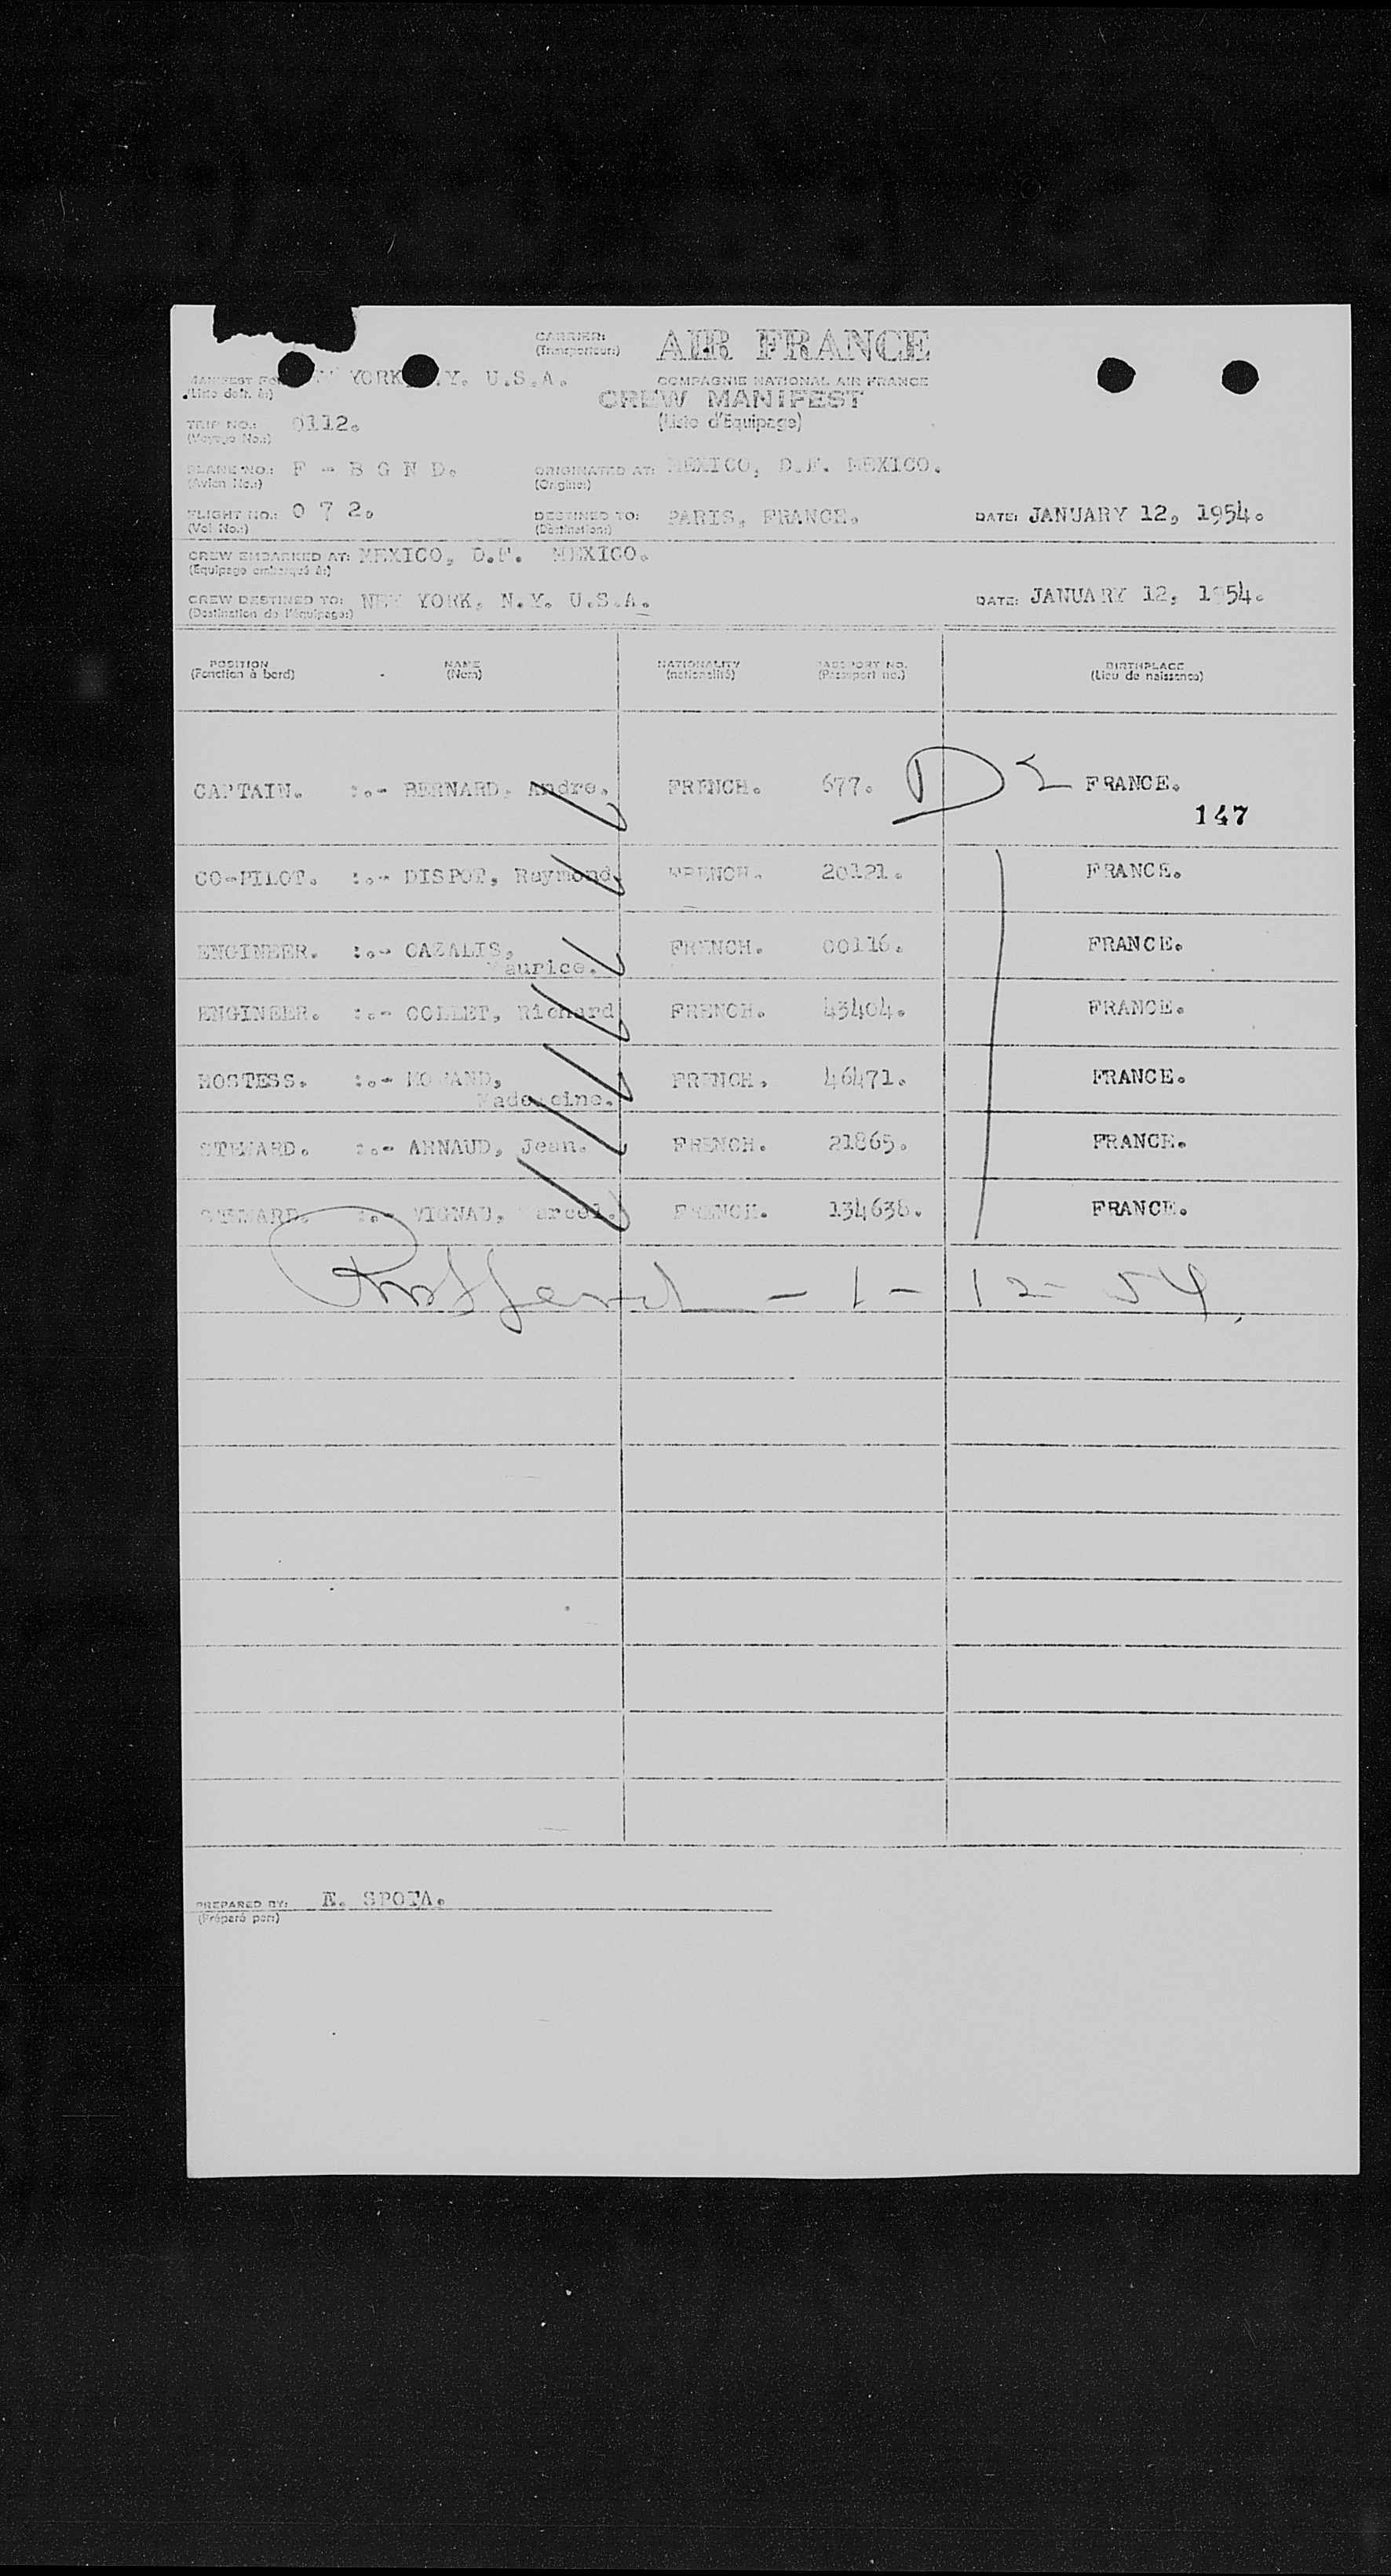 CARRIER: AIR FRANCE
(Transporteur:)
MANIFEST FOR: YORK .Y. U.S.A. COMPAGNIE NATIONAL AIR FRANCE
(Liste dest. à:) CREW MANIFEST
TRIP NO.: 0112. (Liste d'Equipage)
(Voyage No.:)
PLANE NO.: F - B G N D. ORIGINATED AT: MEXICO, D.F. MEXICO.
(Avion No.:) (Origine:)
FLIGHT NO.: 0 7 2. DESTINED TO: PARIS, FRANCE. DATE: JANUARY 12, 1954.
(Vol No.:) (Destination:)
CREW EMBARKED AT: MEXICO, D.F. MEXICO.
(Equipage embarqué à:)
CREW DESTINED TO: NEW YORK, N.Y. U.S.A. DATE: JANUARY 12, 1954.
(Destination de l'équipage:)
POSITION NAME NATIONALITY PASSPORT NO. BIRTHPLACE
(Fonction à bord) (Nom) (nationalité) (Passeport no.) (Lieu de naissance)
CAPTAIN. :.- BERNARD, Andre. FRENCH. 677. FRANCE.
147
CO-PILOT. :.- DISPOT, Raymond. FRENCH. 20121. FRANCE.
ENGINEER. :.- CAZALIS, FRENCH. 00116. FRANCE.
Maurice.
ENGINEER. :.- COLLET, Richard FRENCH. 43404. FRANCE.
HOSTESS. :.- FRENCH. 46471. FRANCE.
STEWARD. :.- ARNAUD, Jean. FRENCH. 21865. FRANCE.
STEWARD. :.- VIGNAU, Marcel. FRENCH. 134638. FRANCE.
- 1 - 12 - 54
PREPARED BY: E. SPOTA.
(Préparé par:)